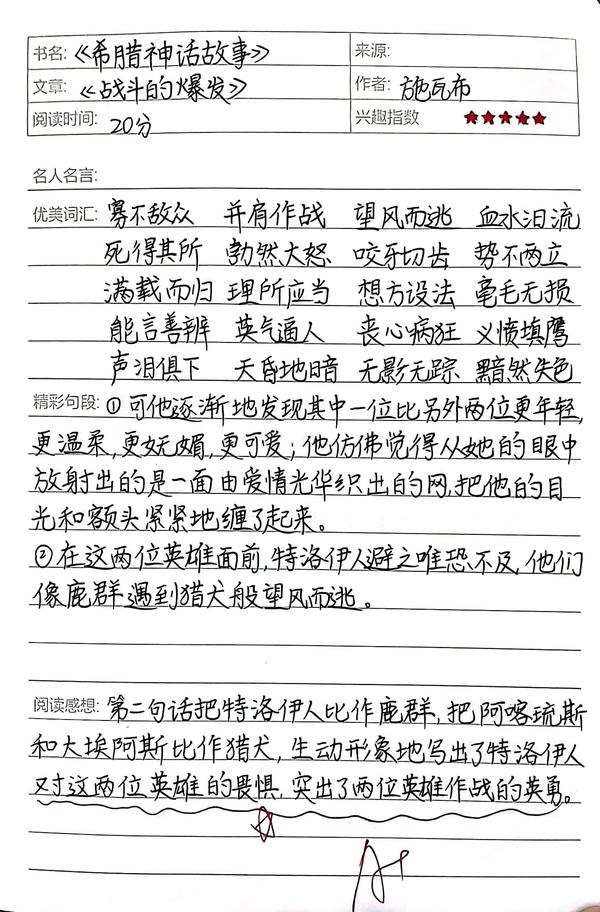 书名:《希腊神话故事》 来源:
文章:《战斗的爆发》 作者: 施瓦布
阅读时间: 20分 兴趣指数 ★★★★★
名人名言:
优美词汇: 寡不敌众 并肩作战 望风而逃 血水汩流
死得其所 勃然大怒 咬牙切齿 势不两立
满载而归 理所应当 想方设法 毫毛无损
能言善辨 英气逼人 丧心病狂 义愤填鹰
声泪俱下 天昏地暗 无影无踪 黯然失色
精彩句段: ①可他逐渐地发现其中一位比另外两位更年轻,
更温柔,更妩媚,更可爱;他仿佛觉得从她的眼中
放射出的是一面由爱情光华织出的网,把他的目
光和额头紧紧地缠了起来。
②在这两位英雄面前,特洛伊人避之唯恐不及,他们
像鹿群遇到猎犬般望风而逃。
阅读感想: 第二句话把特洛伊人比作鹿群,把阿喀琉斯
和大埃阿斯比作猎犬,生动形象地写出了特洛伊人
对这两位英雄的畏惧,突出了两位英雄作战的英勇。
A+